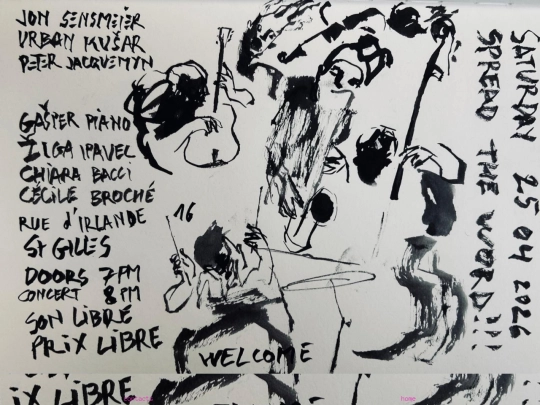 JON SENSMEIER
URBAN KUŠAR
PETER JACQUEMYN
GAŠPER PIANO
ŽIGA IPAVEL
CHIARA BACCI
CÉCILE BROCHÉ
RUE d'IRLANDE 16
ST GILLES
DOORS 7PM
CONCERT 8PM
SON LIBRE
PRIX LIBRE
WELCOME
SATURDAY 25 04 2026
SPREAD THE WORD!!!
iX LIBRE